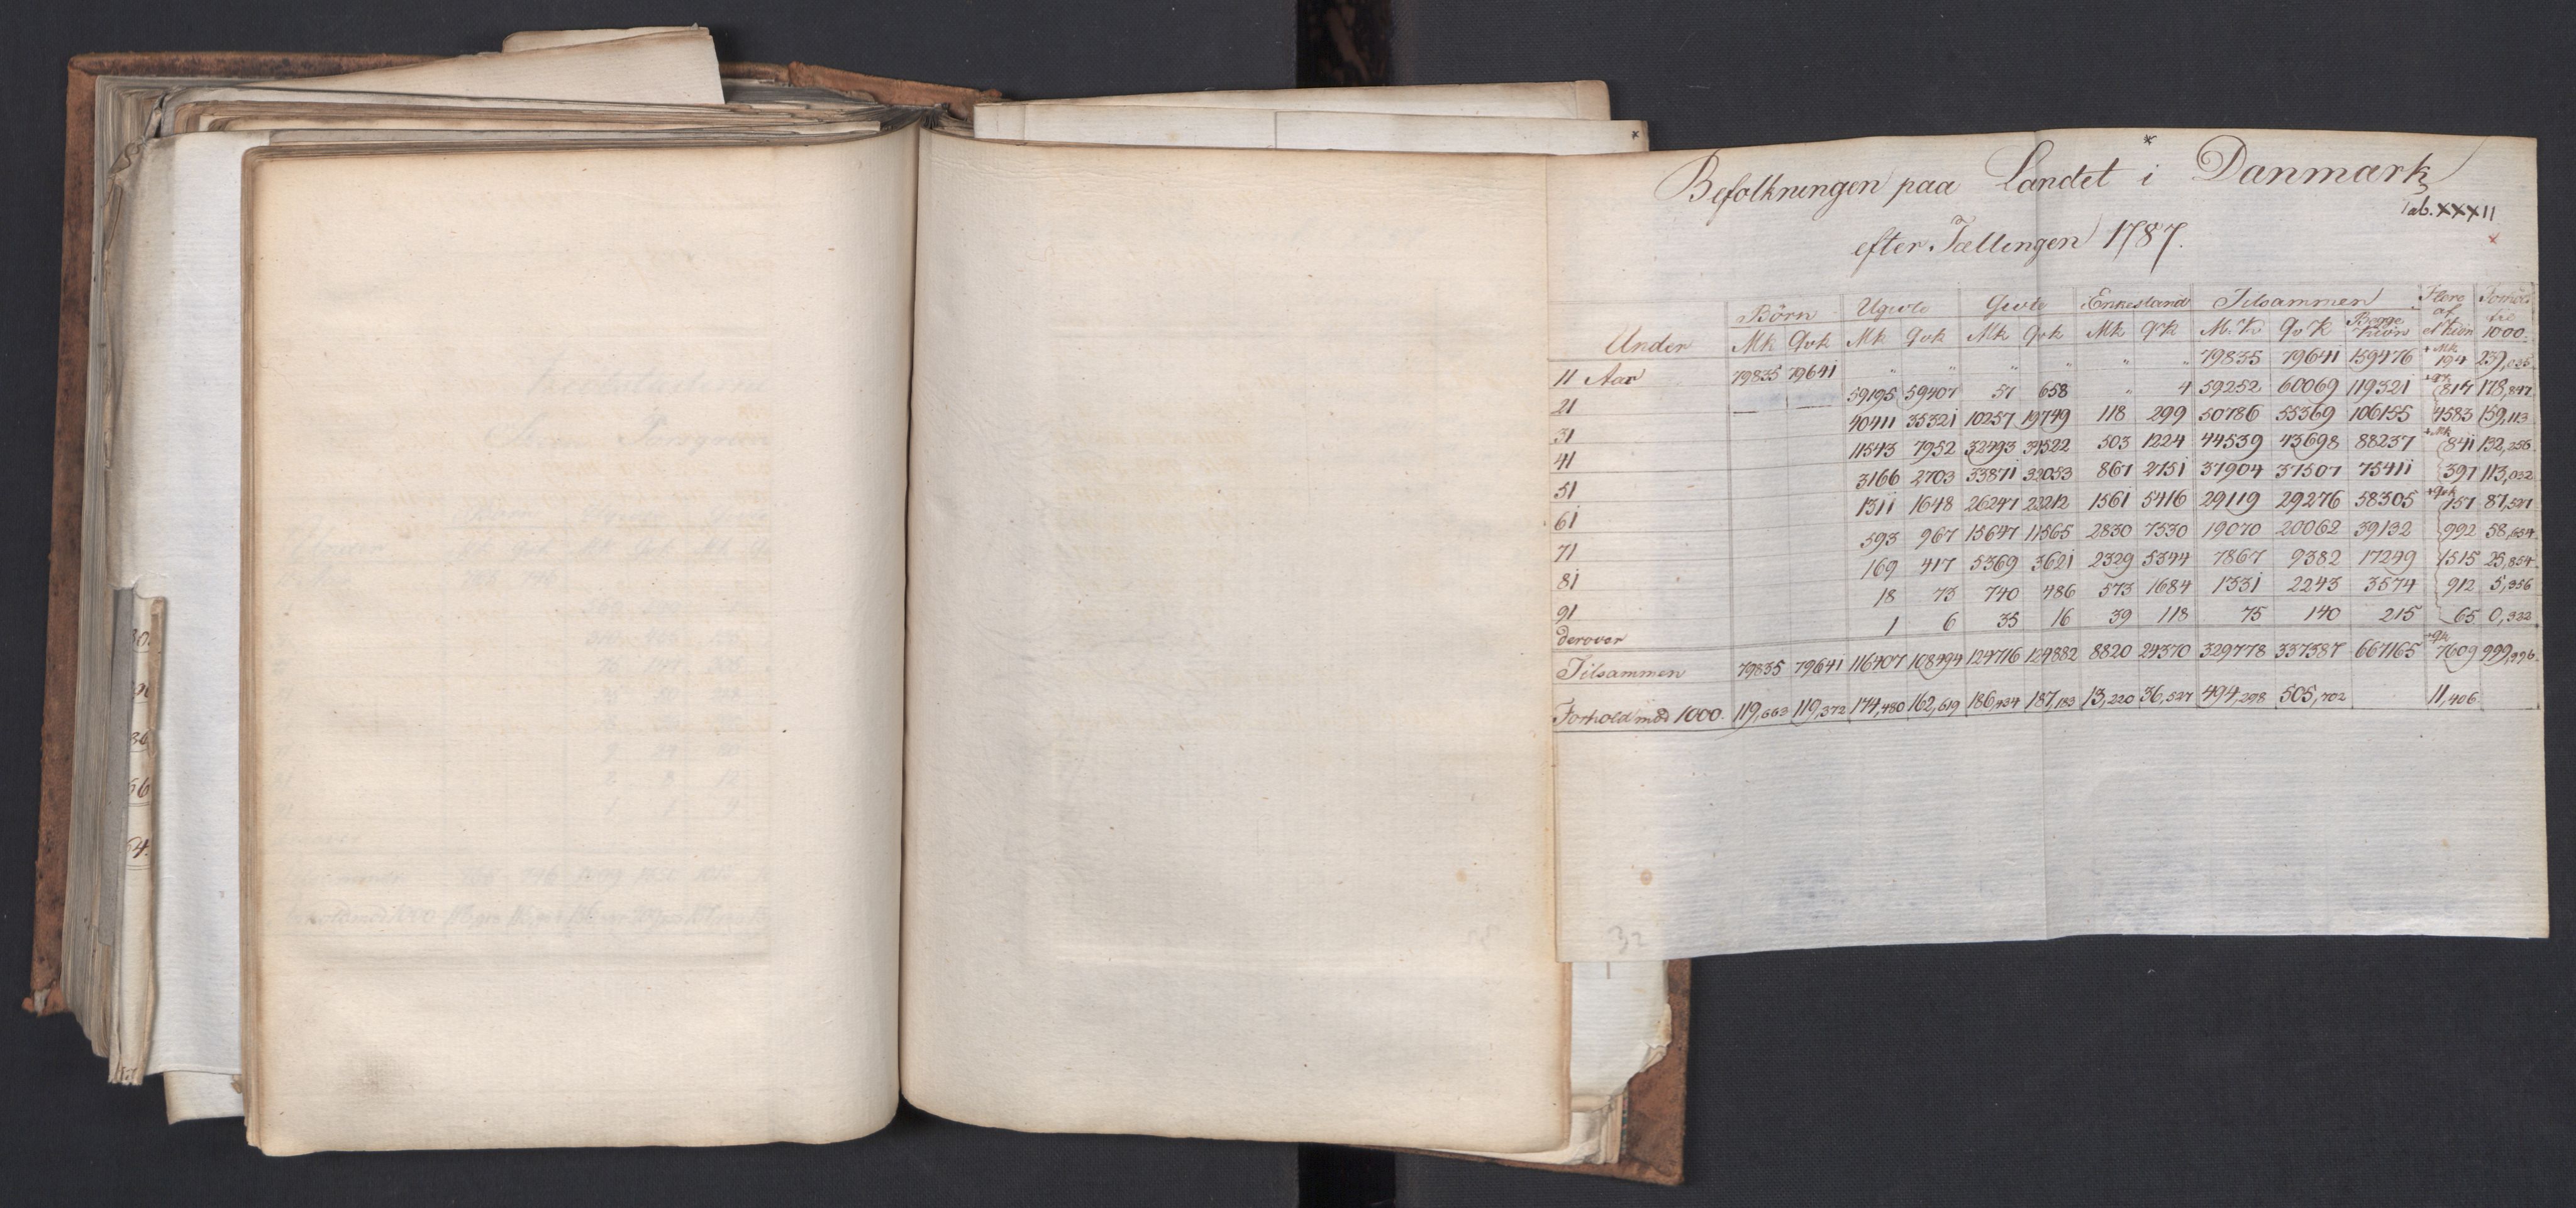 Befolkningen paa Landet i Danmark
Tab. XXXII
efter Tællingen 1787.
Under Börn Ugivte Givte Enkestand Tilsammen Flere af et Kiön Forhold til 1000.
Mk Qvk Mk Qvk Mk Qvk Mk QK M.K Qv K Begge Kiön
11 Aar 79835 79641 " " " " " " 79835 79641 159476 +Mk 194 239,035
21 — — 59195 59407 57 658 " 4 59252 60069 119321 +QK 817 178,847
31 40411 35321 10257 19749 118 299 50786 55369 106155 4583 159,113
41 11543 7952 32493 34522 503 1224 44539 43698 88237 +Mk 841 132,256
51 3166 2703 33871 32053 867 2751 37904 37507 75411 397 113,032
61 1311 1648 26247 22212 1561 5416 29119 29276 58305 +Qvk 157 87,527
71 593 967 15647 11565 2830 7530 19070 20062 39132 992 58,654
81 169 417 5369 3621 2329 5344 7867 9382 17249 1515 25,854
91 18 73 740 486 573 1684 1331 2243 3574 912 5,356
derover 1 6 35 16 39 118 75 140 215 65 0,322
Tilsammen 79835 79641 116407 108494 124716 124882 8820 24370 329778 337387 667165 +QK 7609 999,996
Forhold mod 1000. 119,663 119,372 174,480 162,619 186,934 187,183 13,220 36,527 494,298 505,702 11,406
32